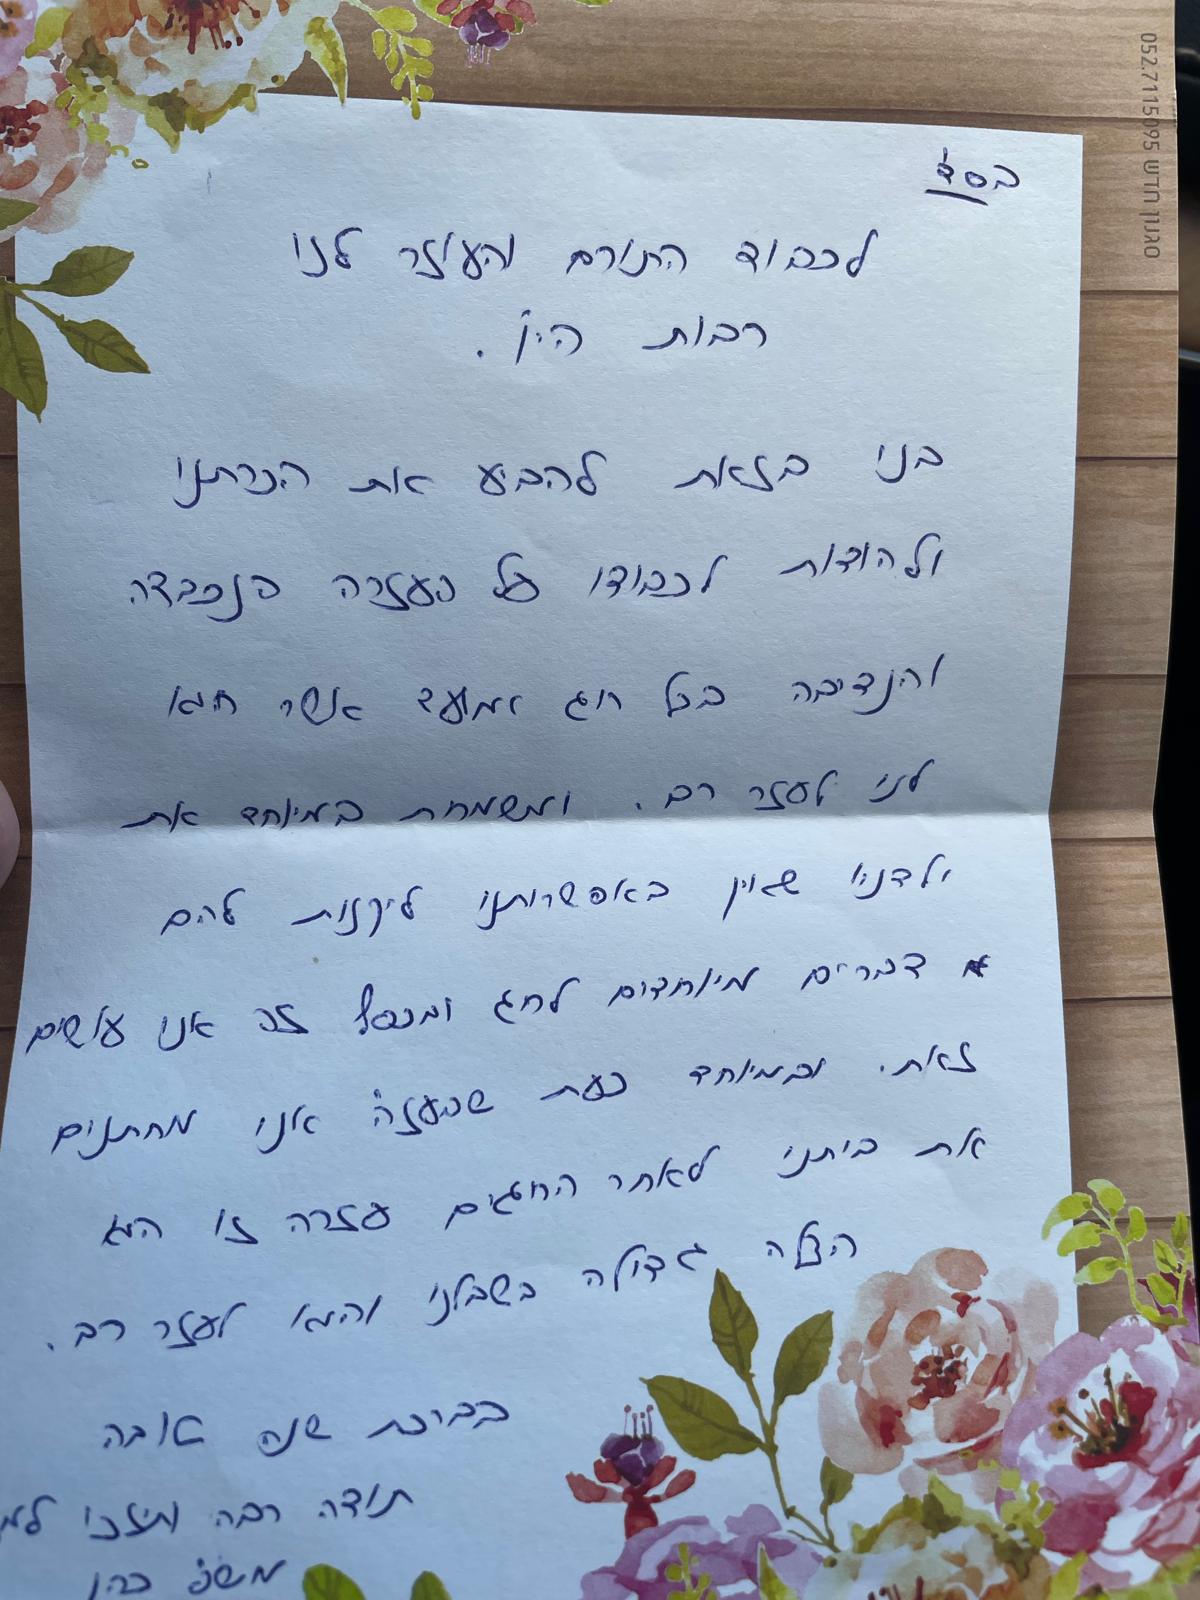 בסד
לכבוד התורם והעוזר לנו
רבות הי"ו.
בנו בזאת להביע את הכרתנו
ולהודות לכבודו על העזרה הנכבדה
והנדיבה בכל חג ומועד אשר הוא
לנו לעזר רב. ומשמחת במיוחד את
ילדנו שאין באפשרותנו ליקנות להם
דברים מיוחדים לחג ובכסף זה אנו עושים
זאת. ובמיוחד כעת שבעזה אנו מחתנים
את ביתנו לאחר החגים עזרה זו היא
הצלה גדולה בשבלנו והיא לעזר רב.
בברכת שנה טובה
תודה רבה ותיזכו
משפ כהן
סגנון חדש 052.7115095